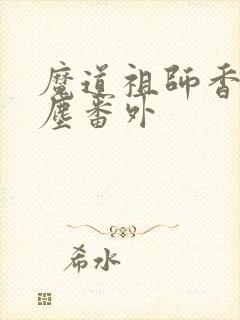 魔道祖師香
塵番外
希水